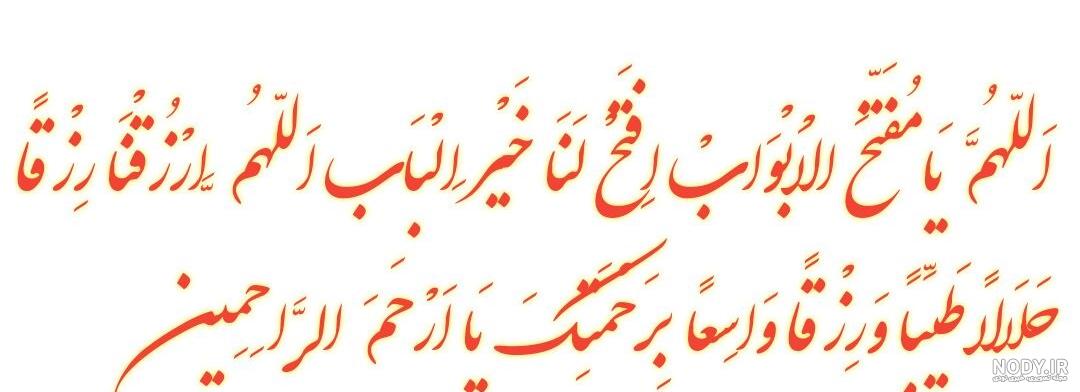 اَللّهُمَّ يَا مُفَتِّحَ الاَبْوَاب اِفْتَحْ لَنَا خَيْرَ الْبَاب اَللّهُمَّ اِرْزُقْنَا رِزْقًا
حَلَالًا طَيِّبًا وَرِزْقًا وَاسِعًا بِرَحْمَتِكَ يَا اَرْحَمَ الرَّاحِمِين
NODY.IR